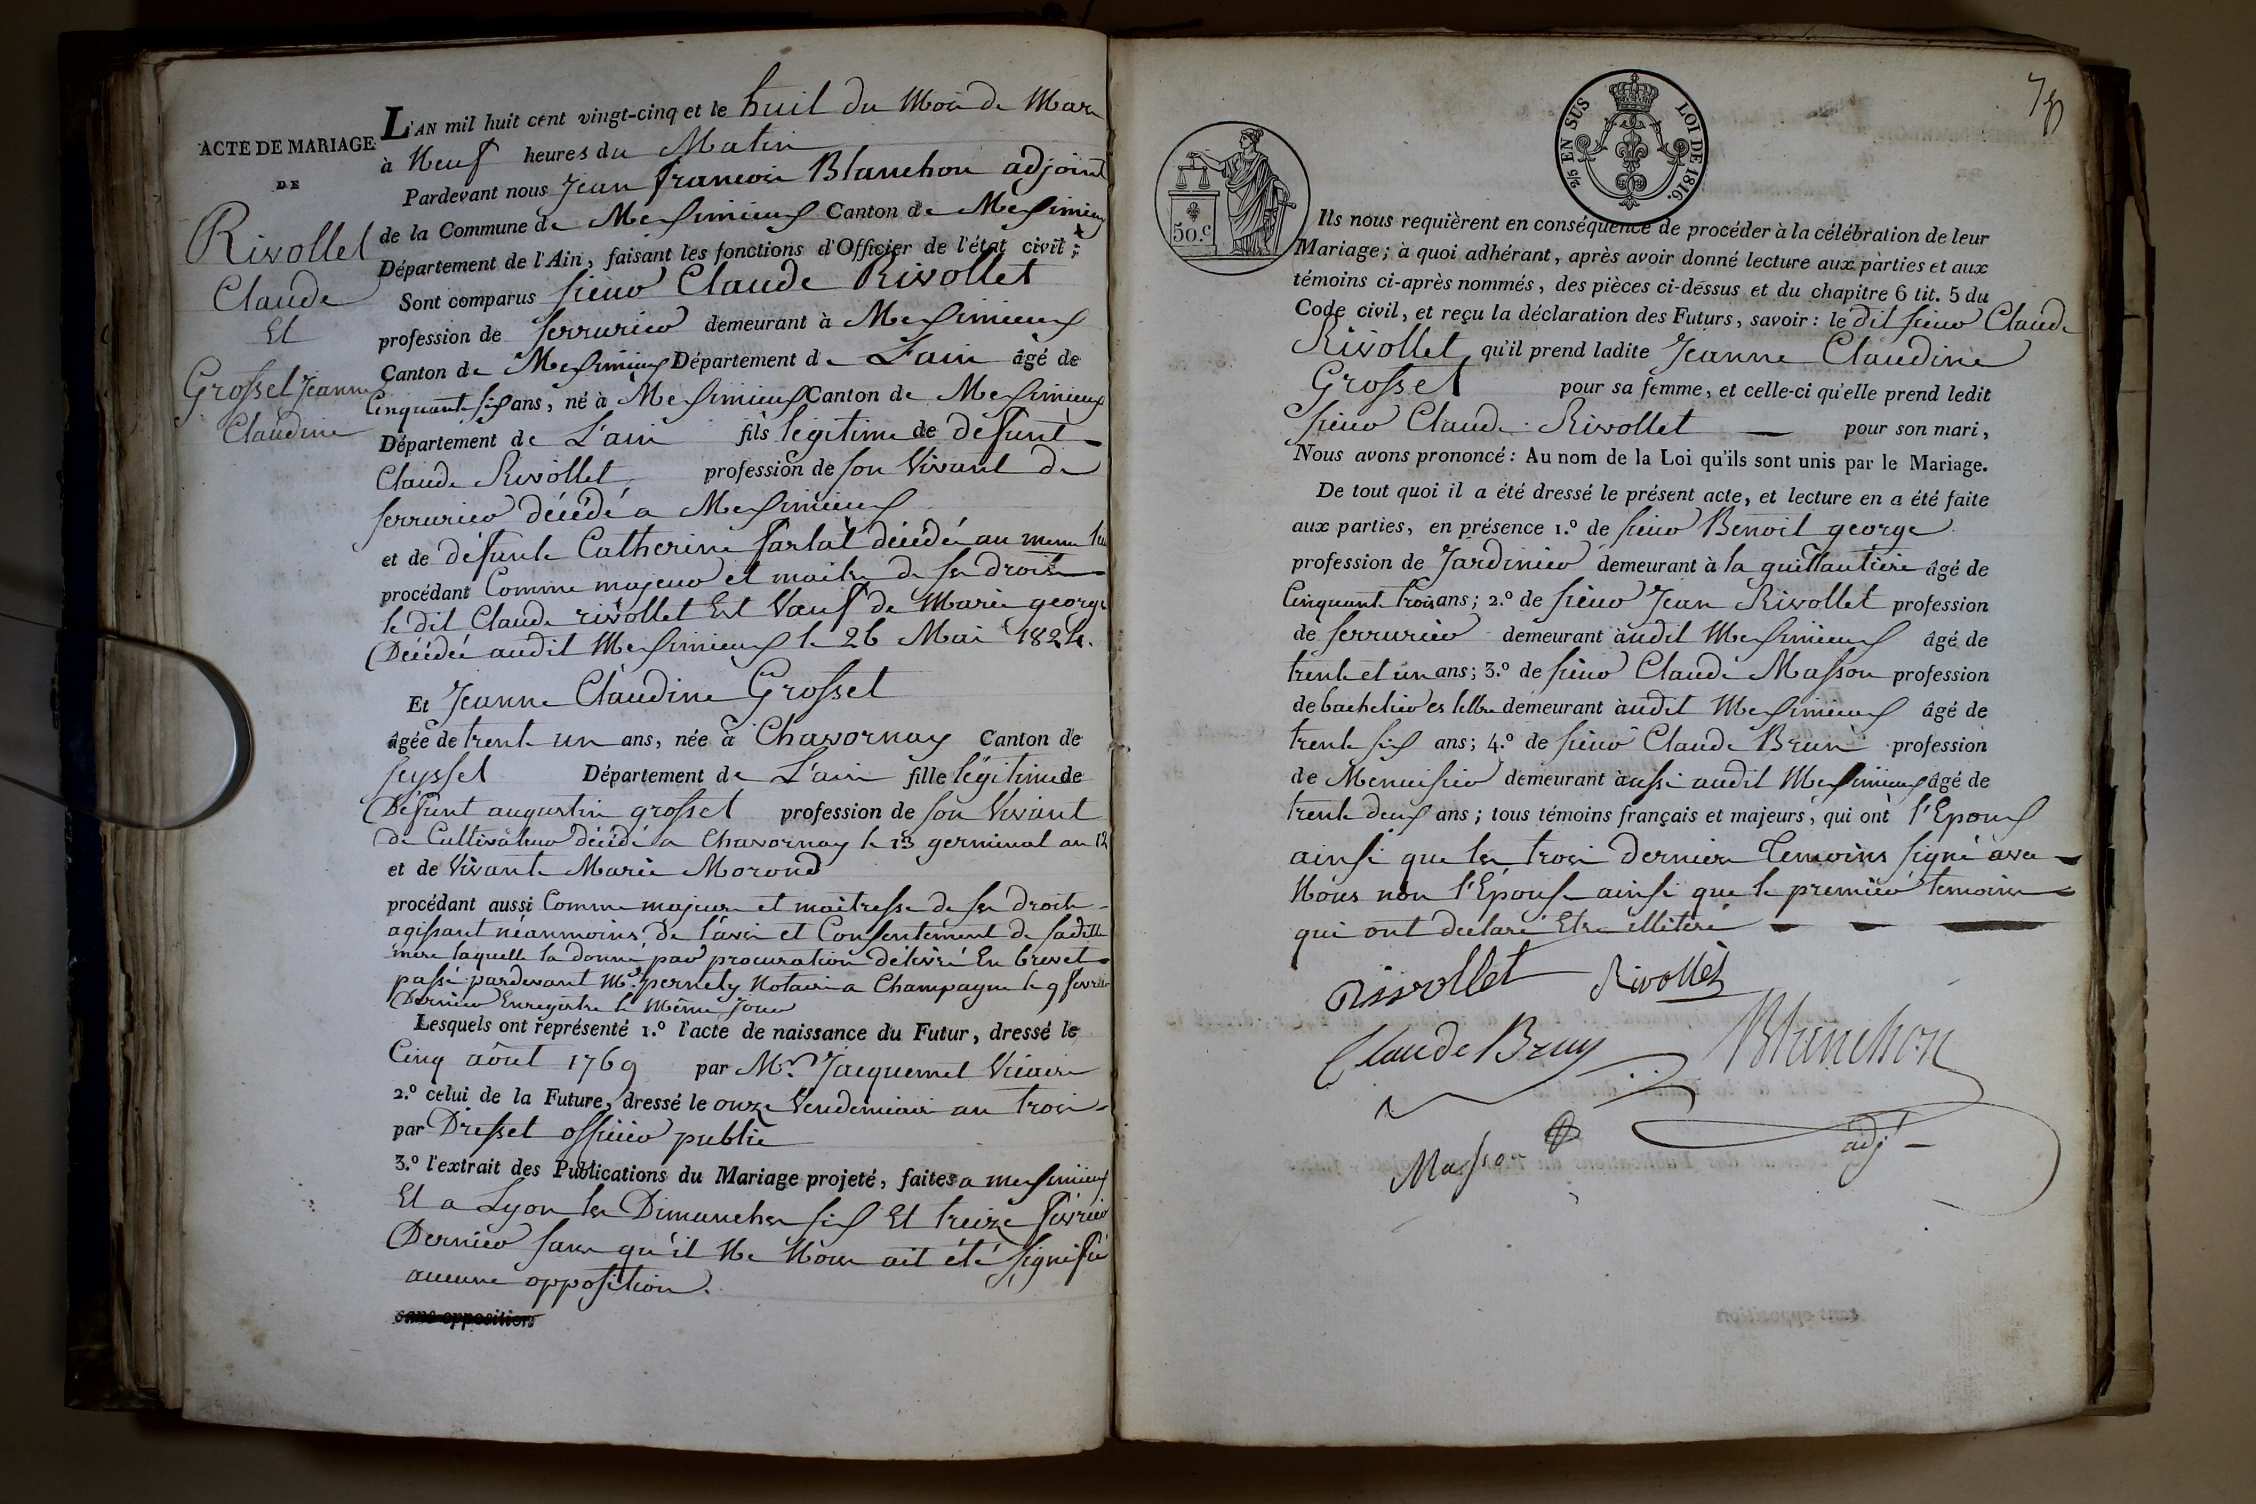 ACTE DE MARIAGE
DE
Rivollet
Claude
Et
Grosset Jeanne
Claudine
L'AN mil huit cent vingt-cinq et le huit du Mois de Mars
à Neuf heures du Matin
Pardevant nous Jean françois Blanchon adjoint
de la Commune de Meximieux Canton de Meximieux
Département de l'Ain, faisant les fonctions d'Officier de l'état civil;
Sont comparus sieur Claude Rivollet
profession de serrurier demeurant à Meximieux
Canton de Meximieux Département de L'ain âgé de
Cinquante six ans, né à Meximieux Canton de Meximieux
Département de L'ain fils légitime de défunt
Claude Rivollet profession de son Vivant de
serrurier décédé a Meximieux
et de défunte Catherine sarlat décédée au meme lieu
procédant Comme majeur et maitre de ses droits
le dit Claude rivollet Est Vauf de Marie george
Décédée audit Meximieux le 26 Mai 1824.
Et Jeanne Claudine Grosset
âgée de trente un ans, née à Chavornay Canton de
seyssel Département de L'ain fille légitime de
Défunt augustin grosset profession de son Vivant
de Cultivateur décédé a Chavornay le 13 germinal an 12
et de Vivante Marie Morond
procédant aussi Comme majeure et maitresse de ses droits
agissant néanmoins de l'avis et Consentement de sadite
mère laquelle la donné par procuration délivré En brevet
passé pardevant Me. pernety Notaire a Champagne le 9 fevrier
Dernier Enregistré le Même jour
Lesquels ont représenté 1.º l'acte de naissance du Futur, dressé le
Cinq août 1769 par Mr. Jacquemet Vicaire
2.º celui de la Future, dressé le onze Vendemiaire an trois
par Dresset officier public
3.º l'extrait des Publications du Mariage projeté, faites a meximieux
Et a Lyon les Dimanches six Et treize février
Dernier sans qu'il Ne Nous ait été signifié
aucune opposition.
sans opposition
78
2/5 EN SUS LOI DE 1816.
50.c
Ils nous requièrent en conséquence de procéder à la célébration de leur
Mariage; à quoi adhérant, après avoir donné lecture aux parties et aux
témoins ci-après nommés, des pièces ci-dessus et du chapitre 6 tit. 5 du
Code civil, et reçu la déclaration des Futurs, savoir: le dit sieur Claude
Rivollet qu'il prend ladite Jeanne Claudine
Grosset pour sa femme, et celle-ci qu'elle prend ledit
sieur Claude Rivollet pour son mari,
Nous avons prononcé: Au nom de la Loi qu'ils sont unis par le Mariage.
De tout quoi il a été dressé le présent acte, et lecture en a été faite
aux parties, en présence 1.º de sieur Benoit george
profession de Jardinier demeurant à la guillautiere âgé de
Cinquante trois ans; 2.º de sieur Jean Rivollet profession
de serrurier demeurant audit Meximieux âgé de
trente et un ans; 3.º de sieur Claude Masson profession
de bachelier es lettre demeurant audit Meximieux âgé de
trente six ans; 4.º de sieur Claude Brun profession
de Menuisier demeurant aussi audit Meximieux âgé de
trente deux ans; tous témoins français et majeurs, qui ont l'Epoux
ainsi que les trois derniers Temoins signé avec
Nous non l'Epouse ainsi que le premier temoins
qui ont declaré Etre illiteré
Rivollet Rivollet
Claude Bruy Blanchon
Masson adjt